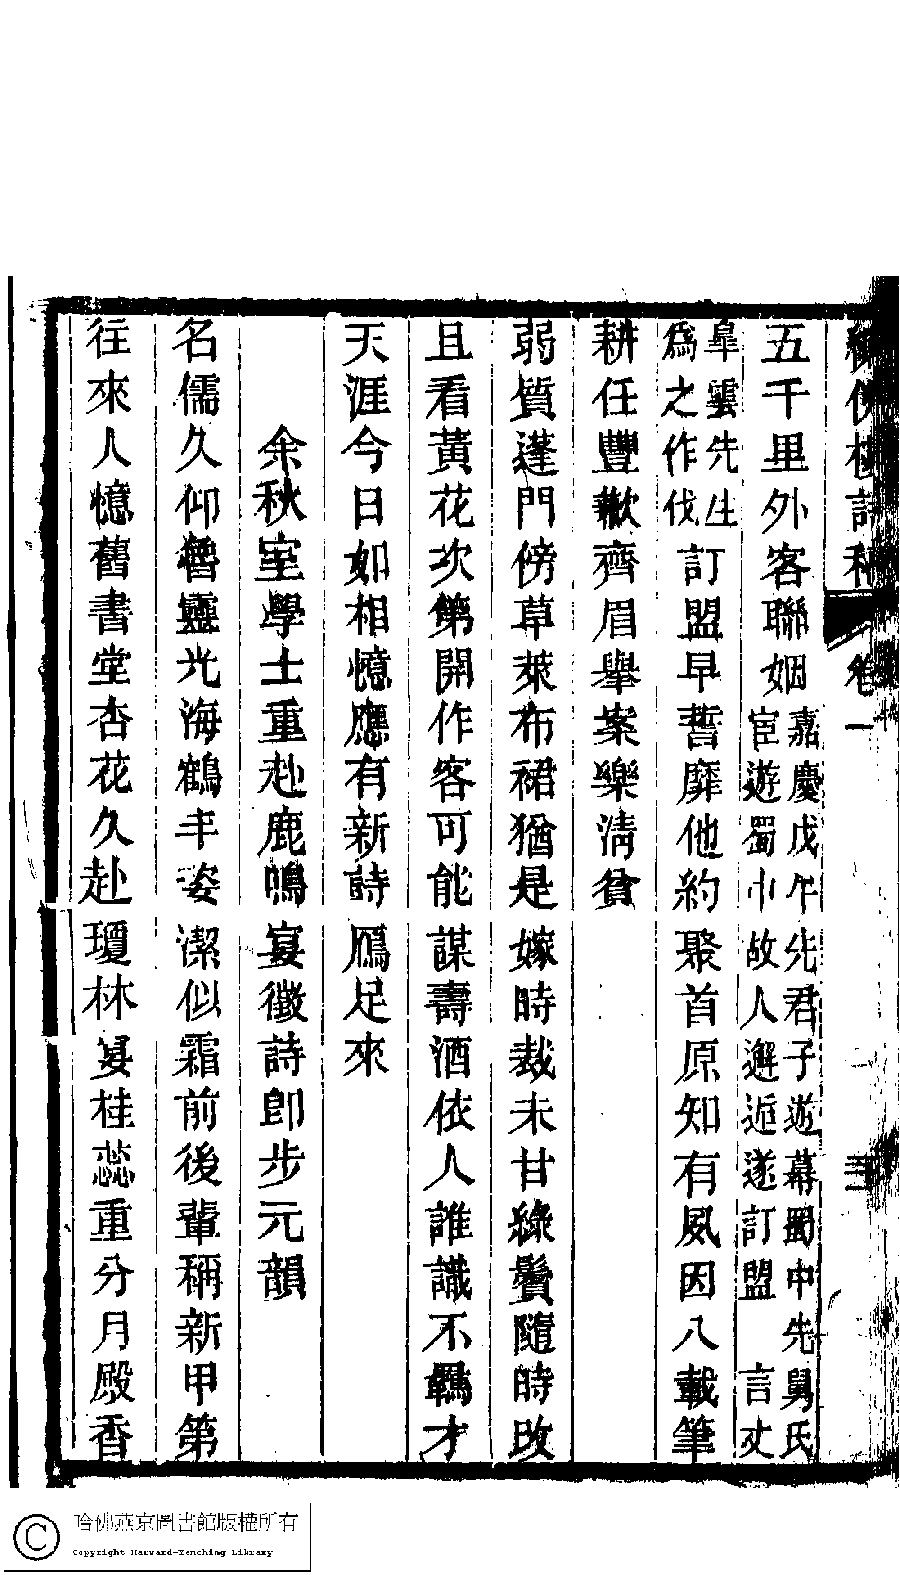 繡佛樓詩稿 卷一 三
五千里外客聯姻嘉慶戊午先君子遊幕蜀中先舅氏
宦遊蜀中故人邂逅遂訂盟 言丈
皐雲先生
爲之作伐訂盟早誓靡他約聚首原知有夙因八載筆
耕任豐歉齊眉舉案樂清貧
弱質蓬門傍草萊布裙猶是嫁時裁未甘綠鬢隨時改
且看黃花次第開作客可能謀壽酒依人誰識不羈才
天涯今日如相憶應有新詩鴈足來
余秋室學士重赴鹿鳴宴徵詩卽步元韻
名儒久仰魯靈光海鶴丰姿潔似霜前後輩稱新甲第
往來人憶舊書堂杏花久赴瓊林宴桂蕊重分月殿香
哈佛燕京圖書館版權所有
Copyright Harvard-Yenching Library